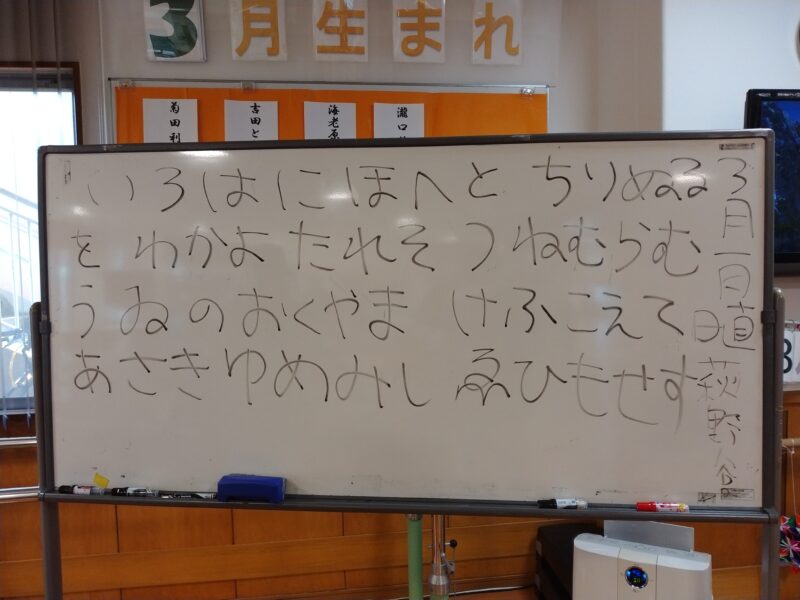 3月生まれ
菊田利
吉田と
海老原
瀧口
いろはにほへと ちりぬる
を わかよ たれそ つねむらむ
うゐのおくやま けふこえて
あさきゆめみし ゑひもせす
3月一日
日直
萩野谷